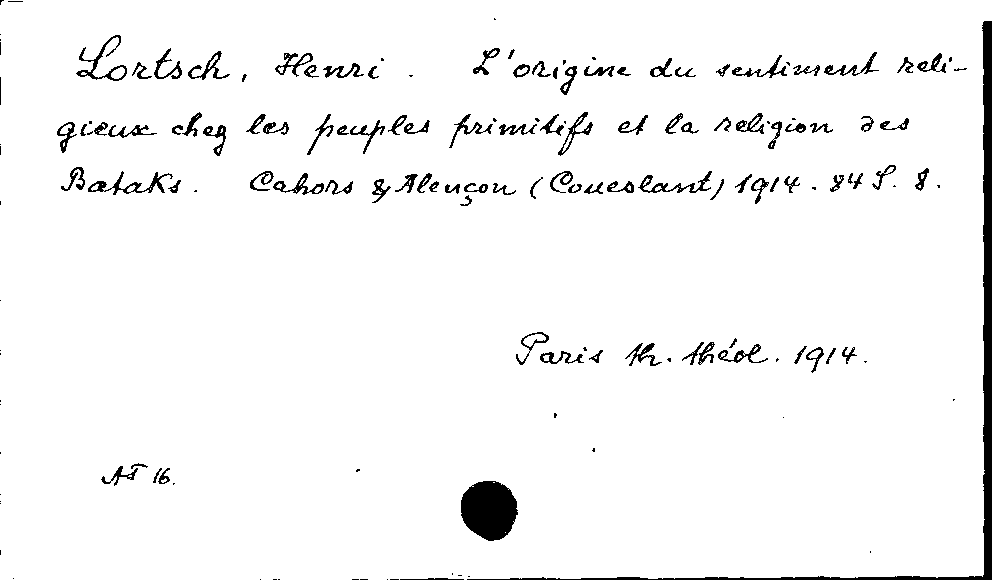 Lortsch, Henri. L'origine du sentiment reli-
gieux chez les peuples primitifs et la religion des
Bataks. Cahors & Alençon (Coueslant) 1914. 84 S. 8.
Paris th. théol. 1914.
AT 16.